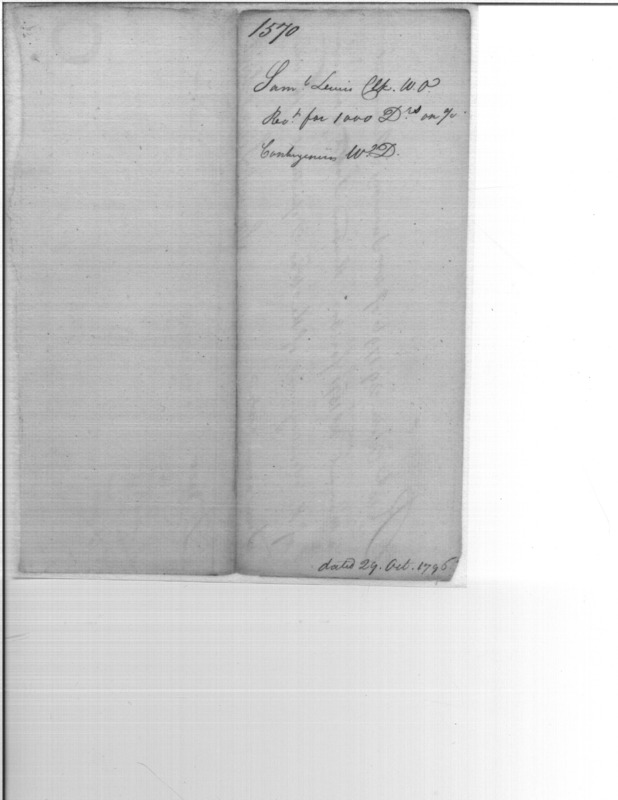 1570
Saml Lewis Clk. W.O
Rect for 1000 Drs on a/c
Contingencies Wr D.
dated 29. Oct. 1796